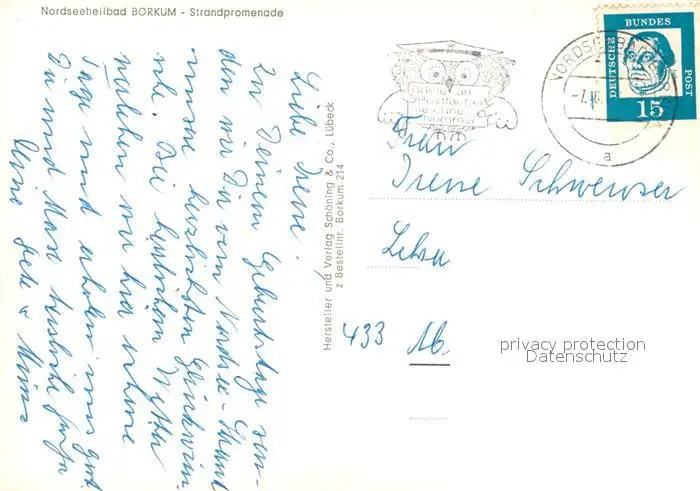 Nordseeheilbad BORKUM - Strandpromenade
Liebe Irene.
Zu Deinem Geburtstag sen-
den wir Dir vom Nordsee-Strand
unsere herzlichsten Glückwün-
sche. Bei herrlichem Wetter
verleben wir hier schöne
Tage und erholen uns gut.
Dir und Max herzliche Grüße
Hersteller und Verlag Schöning & Co., Lübeck
z Bestellnr. Borkum 214
Briefe an
Postfächer
nie ohne
Nummer
NORDSEEBAD
-1.
a
DEUTSCHE
BUNDES
POST
15
Frau
Irene
433
privacy protection
Datenschutz